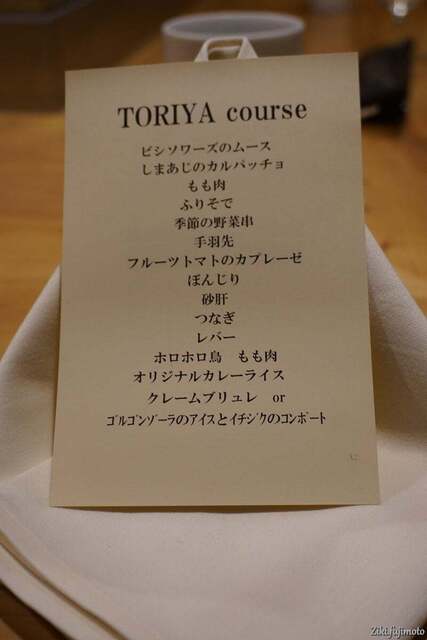 TORIYA course
ビシソワーズのムース
しまあじのカルパッチョ
もも肉
ふりそで
季節の野菜串
手羽先
フルーツトマトのカプレーゼ
ぼんじり
砂肝
つなぎ
レバー
ホロホロ鳥　もも肉
オリジナルカレーライス
クレームブリュレ　or
ゴルゴンゾーラのアイスとイチジクのコンポート
Ziki fujimoto